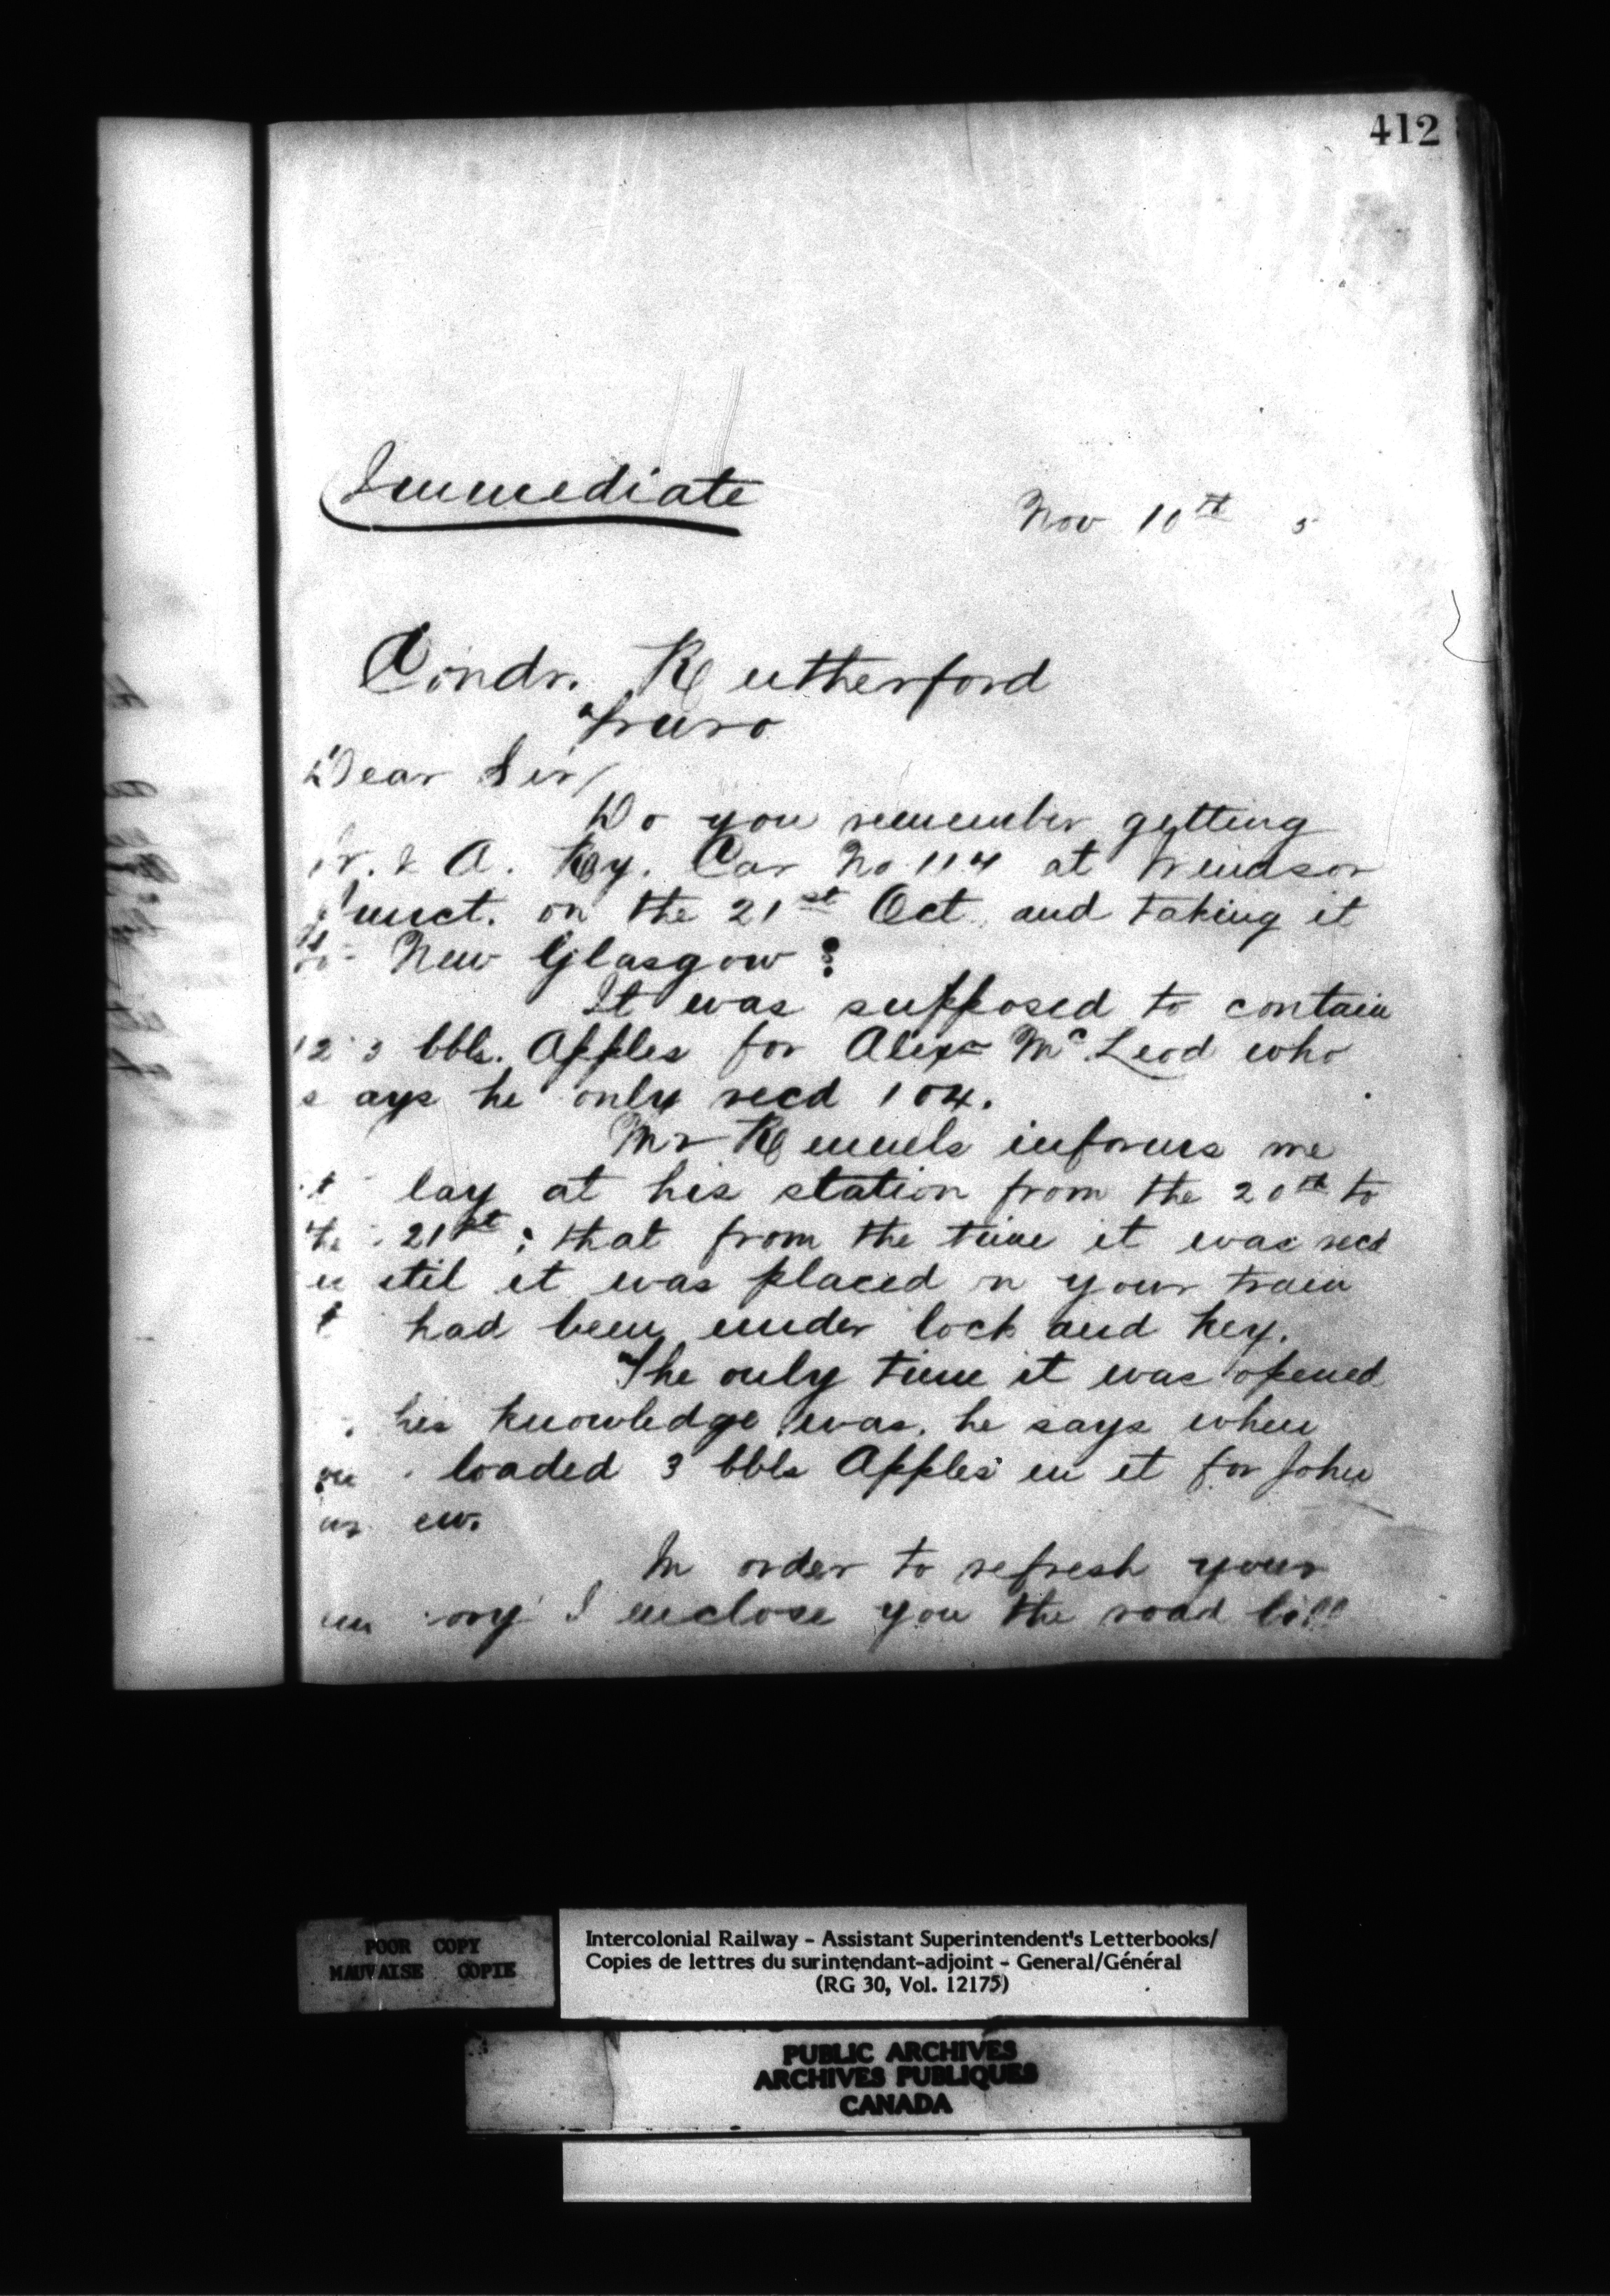 412
Immediate
Nov 10th 5
Condr. Rutherford
Truro
Dear Sir/
Do you remember getting
W. & A. Ry. Car No 114 at Windsor
Junct. on the 21st Oct. and taking it
to New Glasgow?
It was supposed to contain
123 bbls. Apples for Alexr McLeod who
says he only recd 104.
Mr Rennels informs me
it lay at his station from the 20th to
the 21st; that from the time it was recd
until it was placed in your train
it had been under lock and key.
The only time it was opened
his knowledge was, he says when
loaded 3 bbls Apples in it for John
In order to refresh your
memory I enclose you the road bill
POOR COPY
MAUVAISE COPIE
Intercolonial Railway - Assistant Superintendent's Letterbooks/
Copies de lettres du surintendant-adjoint - General/Général
(RG 30, Vol. 12175)
PUBLIC ARCHIVES
ARCHIVES PUBLIQUES
CANADA